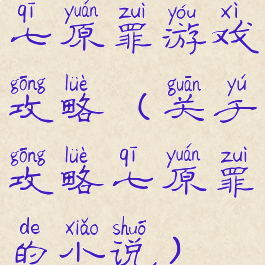 qī yuán zuì yóu xì
七原罪游戏
gōng lüè guān yú
攻略(关于
gōng lüè qī yuán zuì
攻略七原罪
de xiǎo shuō
的小说)